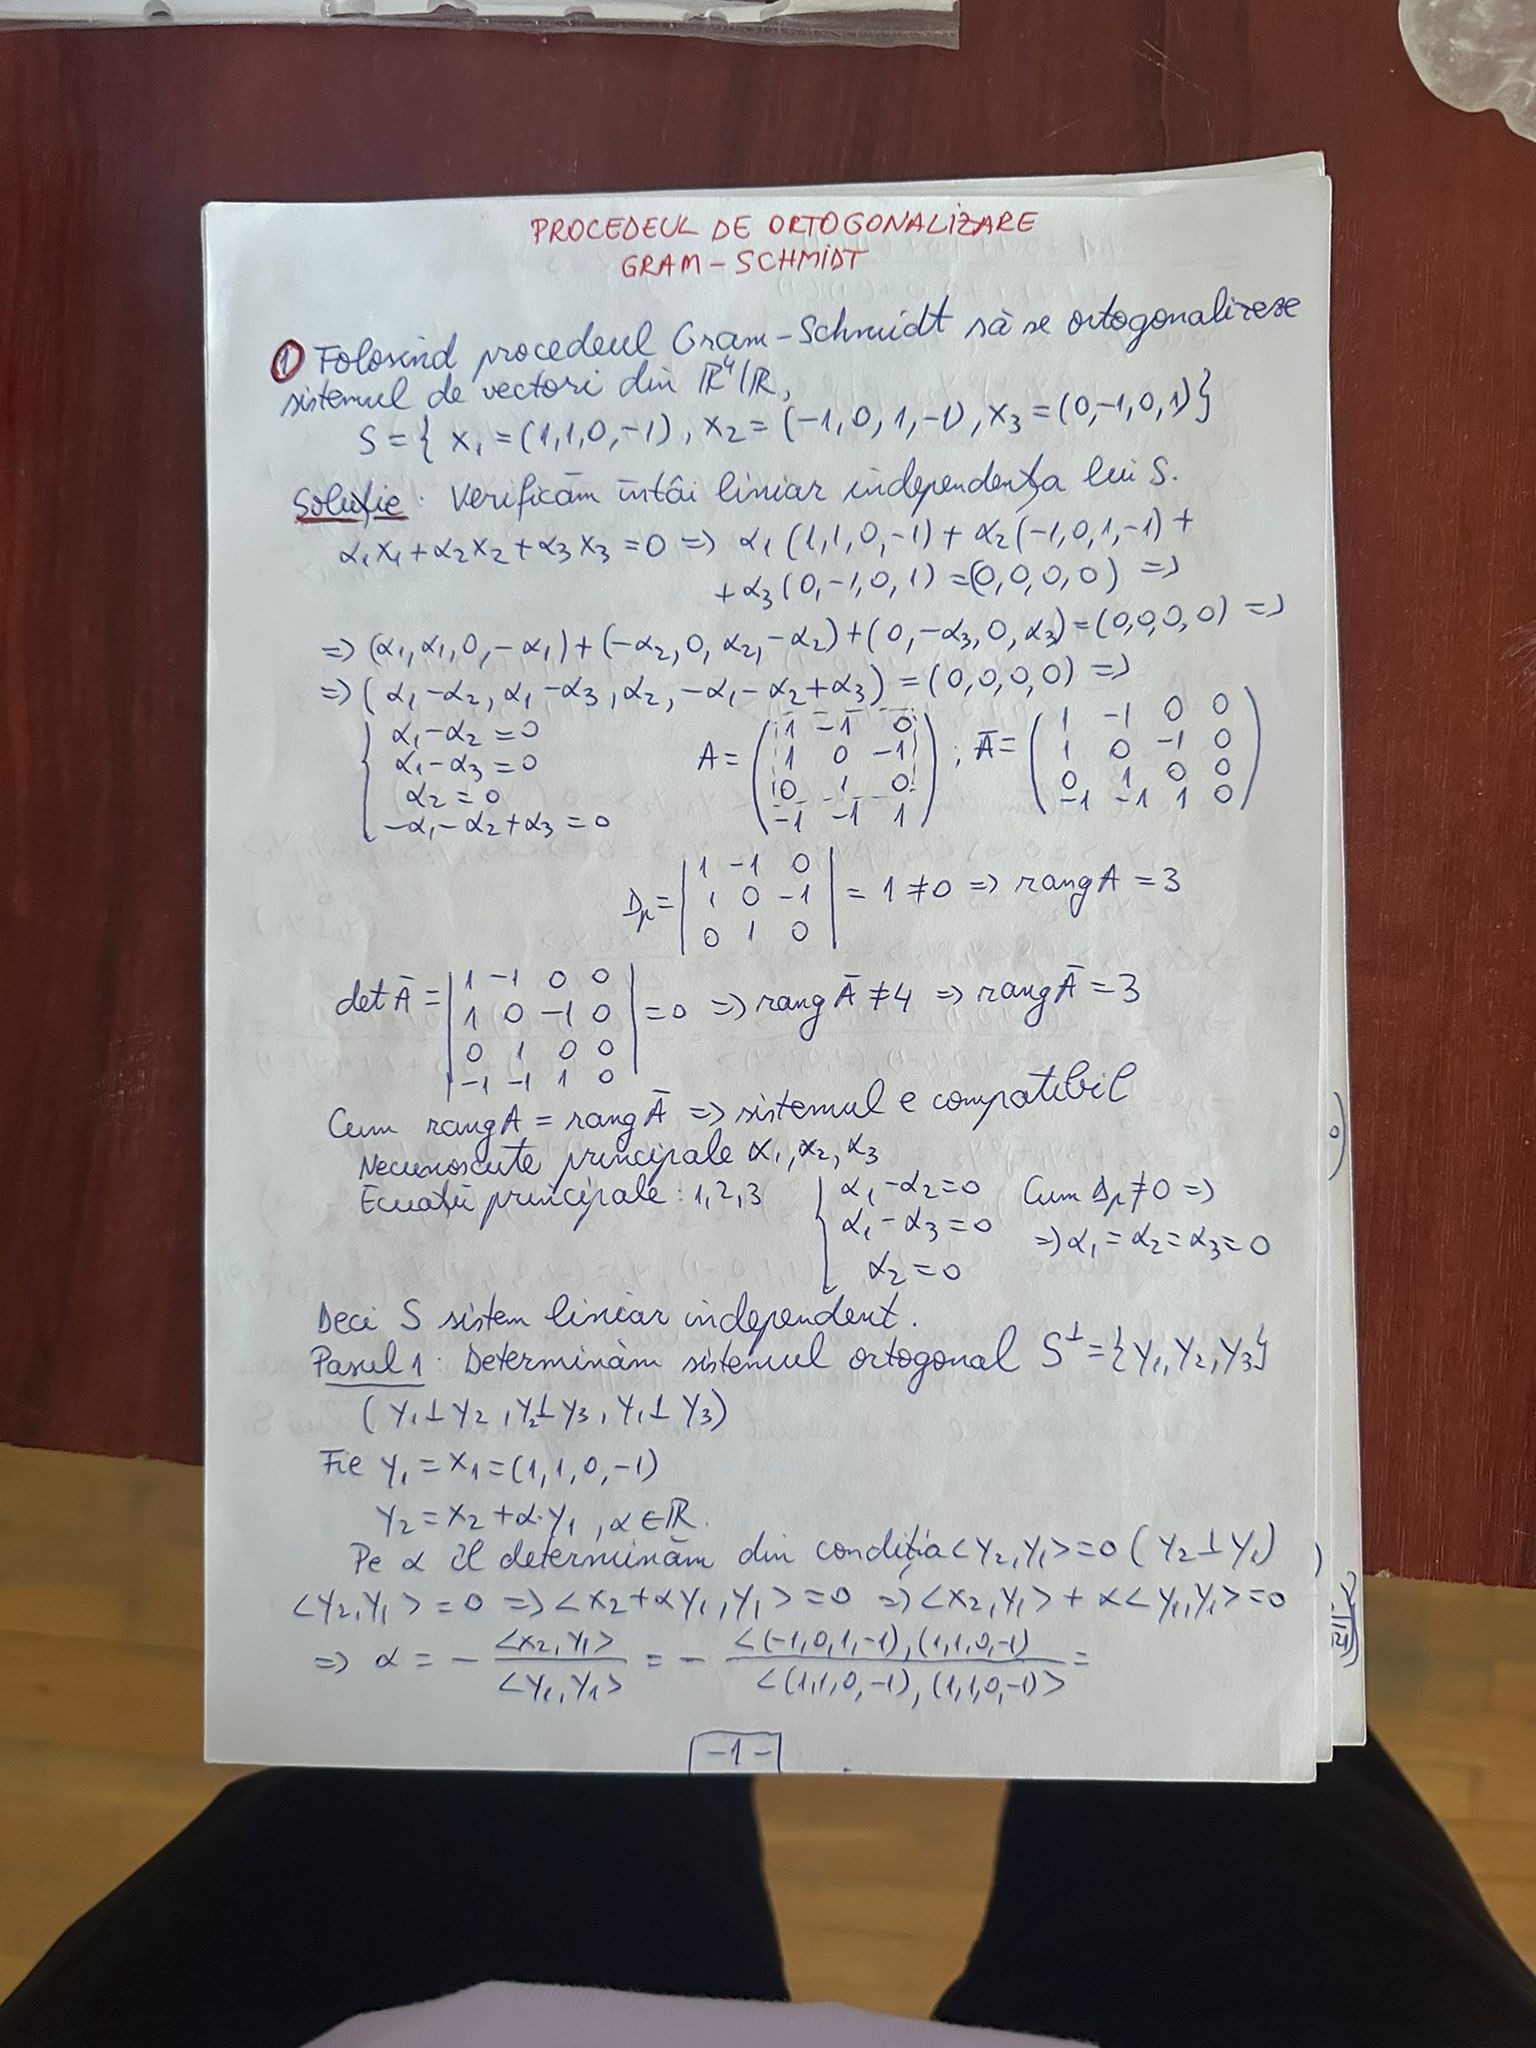 PROCEDEUL DE ORTOGONALIZARE
GRAM - SCHMIDT
① Folosind procedeul Gram-Schmidt să se ortogonalizeze
sistemul de vectori din ℝ⁴/ℝ,
S = { x₁ = (1,1,0,-1), x₂ = (-1,0,1,-1), x₃ = (0,-1,0,1)}
Soluție: Verificăm întâi liniar independența lui S.
α₁x₁+α₂x₂+α₃x₃ = 0 => α₁(1,1,0,-1) + α₂(-1,0,1,-1) +
+ α₃(0,-1,0,1) = (0,0,0,0) =>
=> (α₁,α₁,0,-α₁)+(-α₂,0,α₂,-α₂)+(0,-α₃,0,α₃)=(0,0,0,0) =>
=> (α₁-α₂, α₁-α₃, α₂, -α₁-α₂+α₃) = (0,0,0,0) =>
{ α₁-α₂ = 0
α₁-α₃ = 0
α₂ = 0
-α₁-α₂+α₃ = 0
A = ( 1 -1 0
1 0 -1
0 1 0
-1 -1 1 ) ; Ā = ( 1 -1 0 0
1 0 -1 0
0 1 0 0
-1 -1 1 0 )
Δp = | 1 -1 0
1 0 -1
0 1 0 | = 1 ≠ 0 => rang A = 3
det Ā = | 1 -1 0 0
1 0 -1 0
0 1 0 0
-1 -1 1 0 | = 0 => rang Ā ≠ 4 => rang Ā = 3
Cum rang A = rang Ā => sistemul e compatibil
Necunoscute principale α₁, α₂, α₃
Ecuații principale: 1,2,3 { α₁-α₂=0
α₁-α₃=0
α₂=0
Cum Δp ≠ 0 =>
=> α₁ = α₂ = α₃ = 0
Deci S sistem liniar independent.
Pasul 1: Determinăm sistemul ortogonal S^⊥ = {y₁, y₂, y₃}
(y₁⊥y₂, y₂⊥y₃, y₁⊥y₃)
Fie y₁ = x₁ = (1,1,0,-1)
y₂ = x₂ + α·y₁, α∈ℝ.
Pe α îl determinăm din condiția <y₂,y₁> = 0 (y₂⊥y₁)
<y₂,y₁> = 0 => <x₂+αy₁,y₁> = 0 => <x₂,y₁> + α<y₁,y₁> = 0
=> α = - <x₂,y₁> / <y₁,y₁> = - <(-1,0,1,-1),(1,1,0,-1) / <(1,1,0,-1),(1,1,0,-1)> =
-1-